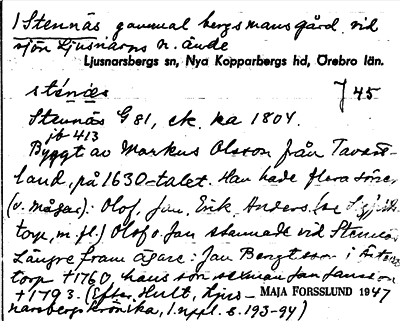 1 Stennäs gammal bergsmansgård vid
sjön Ljusnarns n. ände
Ljusnarsbergs sn, Nya Kopparbergs hd, Örebro län.
sténǟs J 45
Stennäs G 81, ek. ka 1804.
jb 413
Byggt av Markus Olsson från Tavast-
land, på 1630-talet. Han hade flera söner
(o. mågar): Olof, Jan, Erik, Anders (se
torp, m. fl.) Olof o. Jan stannade vid Stennäs
Längre fram ägare: Jan Bengtsson i
torp †1760, hans son sexman Jan Jansson
†1793. (Efter Hult, Ljus- MAJA FORSSLUND 1947
narsbergs krönika, 1. uppl. s. 193-94)